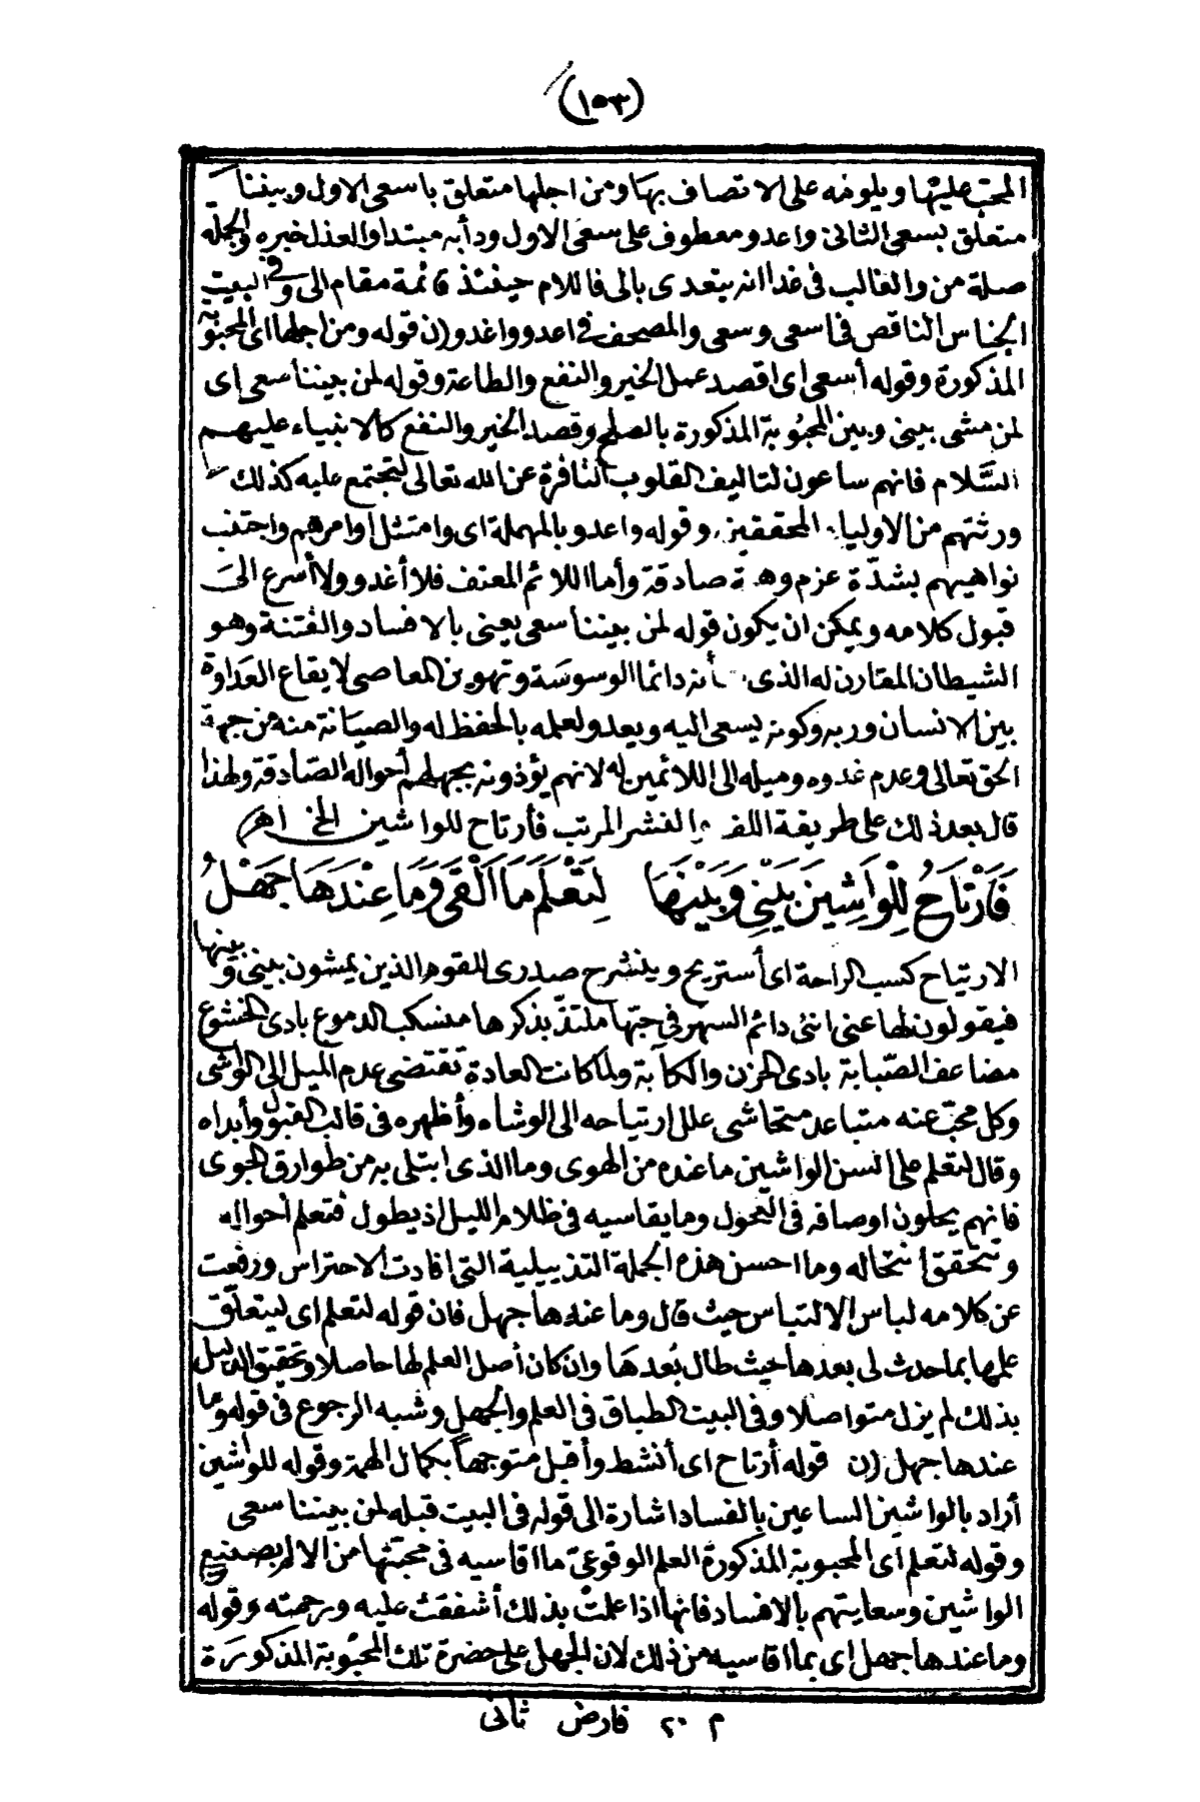 (١٥٣)
المحب عليها ويلومه على الاتصاف بها ومن اجلها متعلق باسعى الاول وبيننا
متعلق بسعى الثانى واعدو معطوف على سعى الاول ودأبه مبتدا والعذل خبره والجملة
صلة من والغالب فى غدا انه يتعدى بالى فاللام حينئذ قائمة مقام الى وفى البيت
الجناس الناقص فى اسعى وسعى والمصحف فى اعدو واغدو (ن) قوله ومن اجلها اى المحبوبة
المذكورة وقوله أسعى اى اقصد عمل الخير والنفع والطاعة وقوله لمن بيننا سعى اى
لمن مشى بينى وبين المحبوبة المذكورة بالصلح وقصد الخير والنفع كالانبياء عليهم
السلام فانهم ساعون لتاليف القلوب النافرة عن الله تعالى لتجتمع عليه كذلك
ورثتهم من الاولياء المحققين وقوله واعدو بالمهملة اى وامتثل اوامرهم واجتنب
نواهيهم بشدّة عزم وهمة صادقة وأما اللائم المعنف فلا أغدو ولا أسرع الى
قبول كلامه ويمكن ان يكون قوله لمن بيننا سعى يعنى بالافساد والفتنة وهو
الشيطان المقارن له الذى دأبه دائما الوسوسة وتهوين المعاصى لايقاع العداوة
بين الانسان وربه وكونه يسعى اليه ويعدو لعلمه بالحفظ له والصيانة منه من جهة
الحق تعالى وعدم غدوه وميله الى اللائمين له لانهم يؤذونه بجهلهم أحواله الصادقة ولهذا
قال بعد ذلك على طريقة اللف والنشر المرتب فأرتاح للواشين الخ اهـ
فَأَرْتَاحُ لِلْوَاشِينَ بَيْنِي وَبَيْنَهَا لِتَعْلَمَ مَا أَلْقَى وَمَا عِنْدَهَا جَهْلُ
الارتياح كسب الراحة اى أستريح وينشرح صدرى للقوم الذين يمشون بينى وبينها
فيقولون لها عنى اننى دائم السهر فى حبها ملتذّ بذكرها منسكب الدموع بادى الخشوع
مضاعف الصّبابة بادى الحزن والكآبة ولما كانت العادة تقتضى عدم الميل الى الواشى
وكل محب عنه متباعد متحاشى علل ارتياحه الى الوشاه وأظهره فى قالب القبول وأبداه
وقال لتعلم على السن الواشين ما عنده من الهوى وما الذى ابتلى به من طوارق الجوى
فانهم يحلون اوصافه فى النحول وما يقاسيه فى ظلام الليل اذ يطول فتعلم أحواله
وتتحقق أنتحاله وما احسن هذه الجملة التذييلية التى افادت الاحتراس ورفعت
عن كلامه لباس الالتباس حيث قال وما عندها جهل فان قوله لتعلم اى ليتعلّق
علمها بما حدث لى بعدها حيث طال بُعدها وان كان أصل العلم لها حاصلا وتحقيق الدليل
بذلك لم يزل متواصلا وفى البيت الطباق فى العلم والجهل وشبه الرجوع فى قوله وما
عندها جهل (ن) قوله أرتاح اى أنشط وأقبل متوجها بكمال الهمة وقوله للواشين
أراد بالواشين الساعين بالفساد اشارة الى قوله فى البيت قبله لمن بيننا سعى
وقوله لتعلم اى المحبوبة المذكورة العلم الوقوعىّ ما اقاسيه فى محبتها من الالم بصنيع
الواشين وسعايتهم بالافساد فانها اذا علمت بذلك أشفقت عليه ورحمته وقوله
وما عندها جهل اى بما اقاسيه من ذلك لان الجهل على حضرة تلك المحبوبة المذكورة
م ٢٠ فارض ثانى